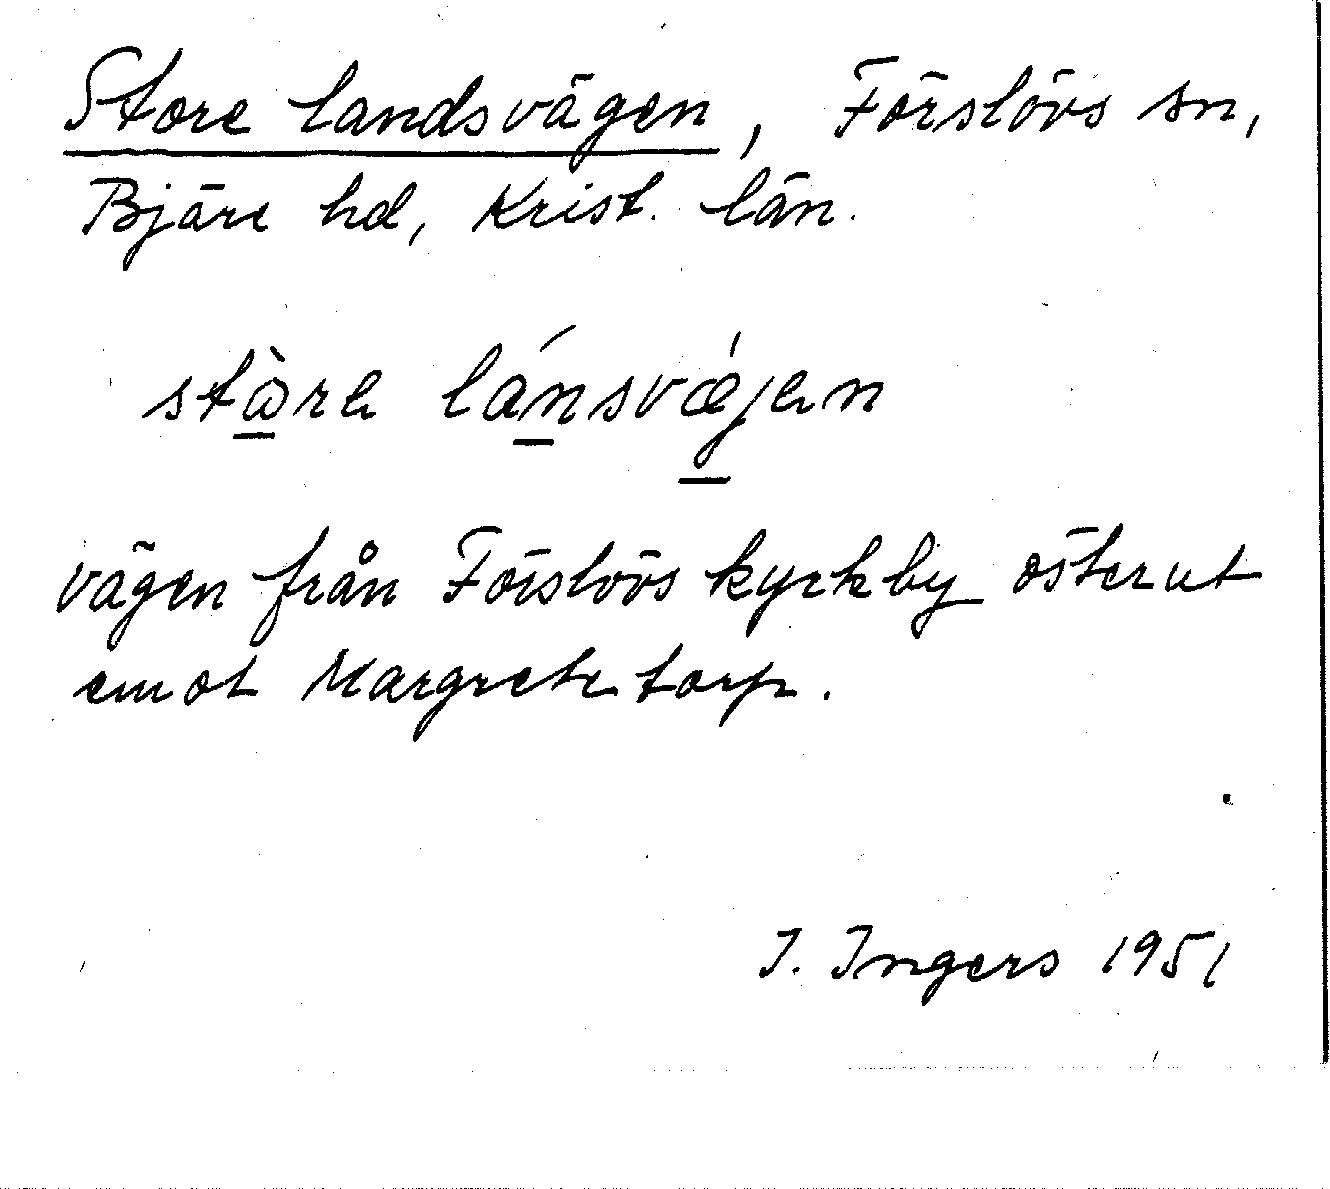 Store landsvägen, Förslövs sn,
Bjäre hd, Krist. län.
stὼre lánsvǽjen
vägen från Förslövs kyrkby österut
emot Margretetorp.
I. Ingers 1951